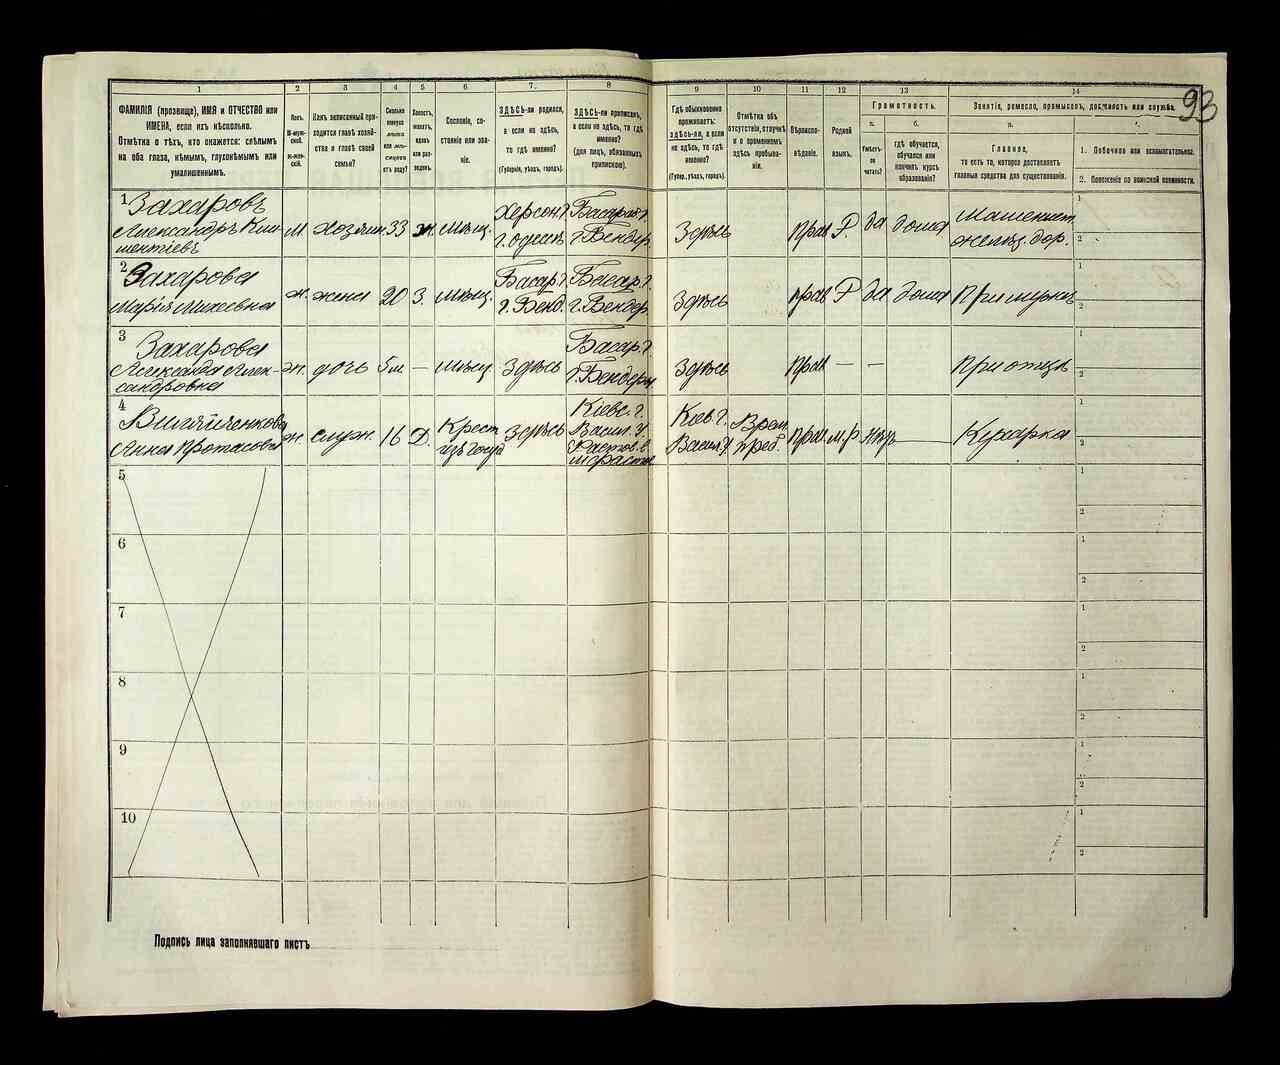 93
1
ФАМИЛІЯ (прозвище), ИМЯ и ОТЧЕСТВО или
ИМЕНА, если ихъ нѣсколько.
Отмѣтка о тѣхъ, кто окажется: слѣпымъ
на оба глаза, нѣмымъ, глухонѣмымъ или
умалишеннымъ.
2
Полъ.
М-муж-
ской.
Ж-жен-
скій.
3
Какъ записанный при-
ходится главѣ хозяй-
ства и главѣ своей
семьи?
4
Сколько
минуло
лѣтъ
или мѣ-
сяцевъ
отъ роду?
5
Холостъ,
женатъ,
вдовъ
или раз-
веденъ.
6
Сословіе, со-
стояніе или зва-
ніе.
7.
ЗДѢСЬ-ли родился,
а если не здѣсь,
то гдѣ именно?
(Губернія, уѣздъ, городъ).
8
ЗДѢСЬ-ли приписанъ,
а если не здѣсь, то гдѣ
именно?
(для лицъ, обязанныхъ
припискою).
9
Гдѣ обыкновенно
проживаетъ:
здѣсь-ли, а если
не здѣсь, то гдѣ
именно?
(Губер., уѣздъ, городъ).
10
Отмѣтка объ
отсутствіи, отлучкѣ
и о временномъ
здѣсь пребыва-
ніи.
11
Вѣроиспо-
вѣданіе.
12
Родной
языкъ.
13
Грамотность.
а.
Умѣетъ-
ли
читать?
б.
гдѣ обучается,
обучался или
кончилъ курсъ
образованія?
14
Занятія, ремесло, промыселъ, должность или служба.
а.
Главное,
то есть то, которое доставляетъ
главныя средства для существованія.
1. Побочное или вспомогательное.
2. Положеніе по воинской повинности.
1 Захаровъ
Александръ Кли-
ментіевъ
м хозяин 33 ж. мѣщ.
Херсон. г.
г. Одесса
Басар. г.
г. Бендер.
Здѣсь прав Р. да дома
Машинист
желѣз. дор.
1
2
2 Захарова
Марія Михеевна
ж. жена 20 З. мѣщ.
Басар. г.
г. Бенд.
Басар. г.
г. Бендер.
Здѣсь прав Р да дома При мужѣ
1
2
3 Захарова
Александра Алек-
сандровна
ж. дочь 5 м. — мѣщ Здѣсь
Басар. г.
г. Бендеры
Здѣсь прав — — При отцѣ
1
2
4
Анна Протасовна
ж. служ. 16 Д.
Крест
Здѣсь
Кіевс. г.
Васил. у.
Кіев. г.
Васил. у.
Врем.
преб.
прав. м.р. — Кухарка
1
2
5
1
2
6
1
2
7
1
2
8
1
2
9
1
2
10
1
2
Подпись лица заполнявшаго листъ